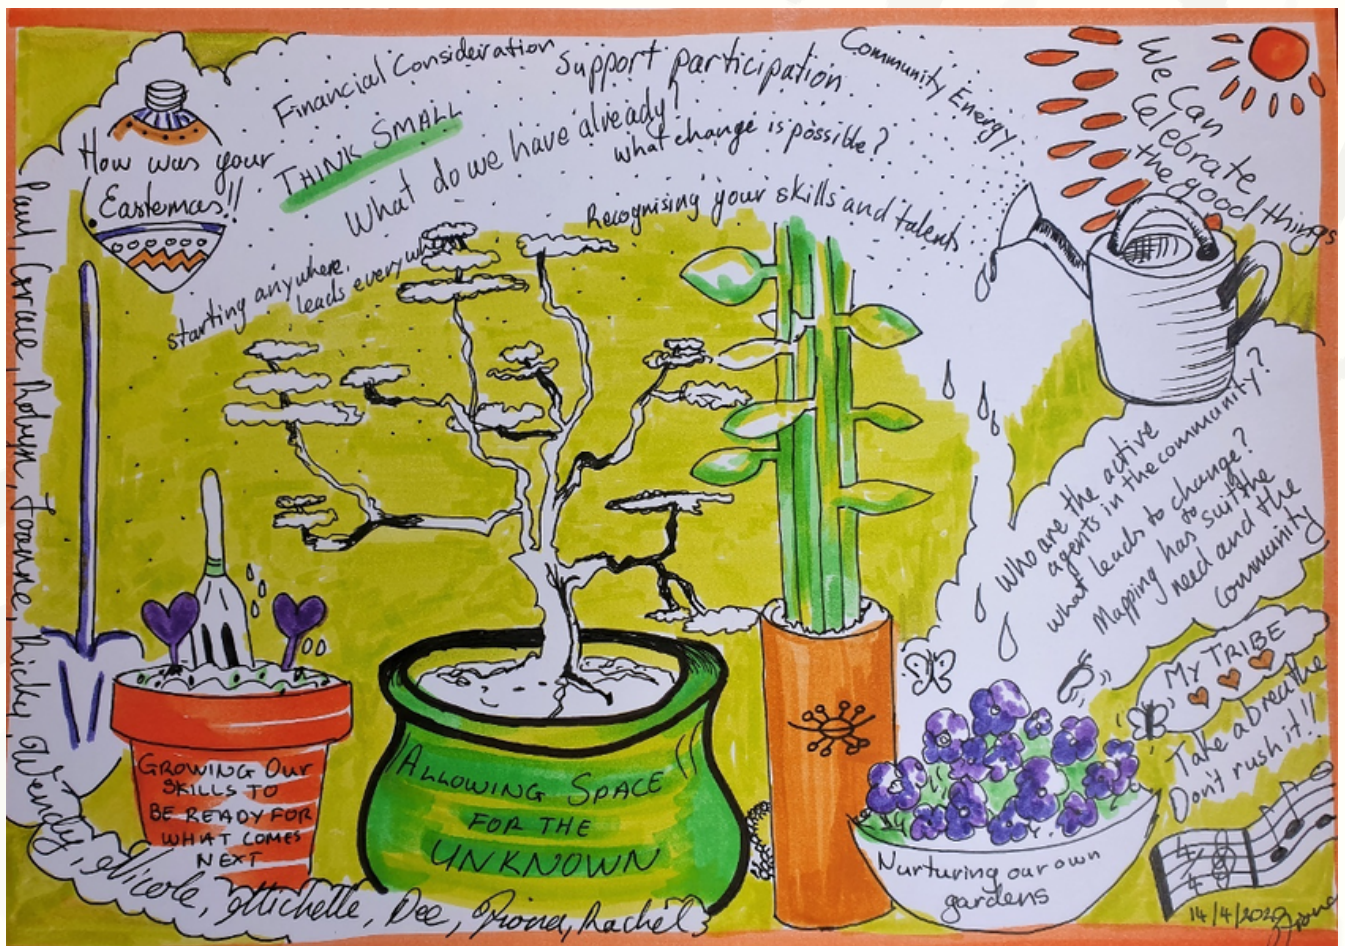 How was your
Eastermas!!
Financial Consideration
THINK SMALL
What do we have already?
Support participation
what change is possible?
Community Energy
Recognising your skills and talents
starting anywhere,
leads everywhere
We
Can
Celebrate
the good things
Who are the active
agents in the community?
what leads to change?
Mapping has to suit the
need and the
community
MY TRIBE
Take a breathe
Don't rush it!!
GROWING OUR
SKILLS TO
BE READY FOR
WHAT COMES
NEXT
ALLOWING SPACE
FOR THE
UNKNOWN
Nurturing our own
gardens
Paul, Corrace, Robyn, Joanne, Ricky, Wendy, Nicole, Michelle, Dee, Fiona, Rachel
4/4
14/4/2020
Fiona